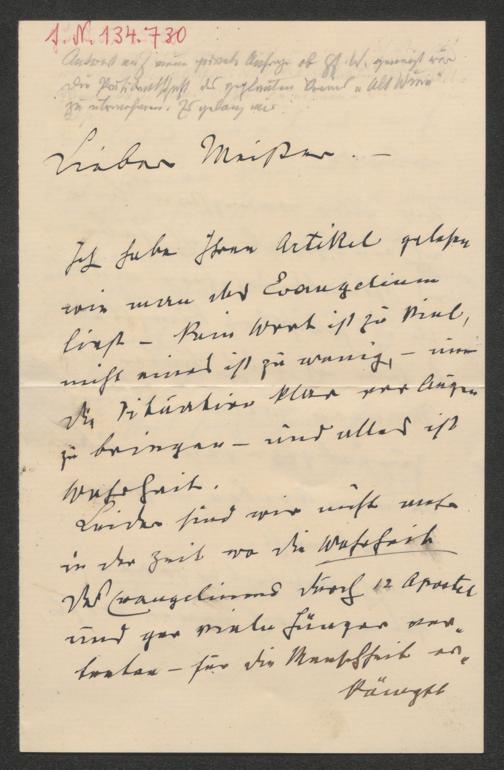 J. N. 134.730
Antwort auf meine private Anfrage ob Gf. W. geneigt wär
die Präsidentschaft des geplanten Vereins "Alt Wien"
zu übernehmen. Es gelang mir
Lieber Meister. –
Ich habe Ihren Artikel gelesen
wie man das Evangelium
liest – kein Wort ist zu viel,
nicht eines ist zu wenig, – um
die Situation klar vor Augen
zu bringen – und alles ist
Wahrheit.
Leider sind wir nicht mehr
in der Zeit wo die Wahrheit
des Evangeliums durch 12 Apostel
und gar viele Jünger ver-
breitet – für die Menschheit er-
kämpft